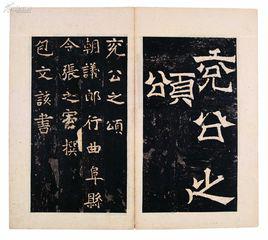 兖公之
頌
兖公之頌
朝議郎行曲阜縣
令張之宏撰
包文該書